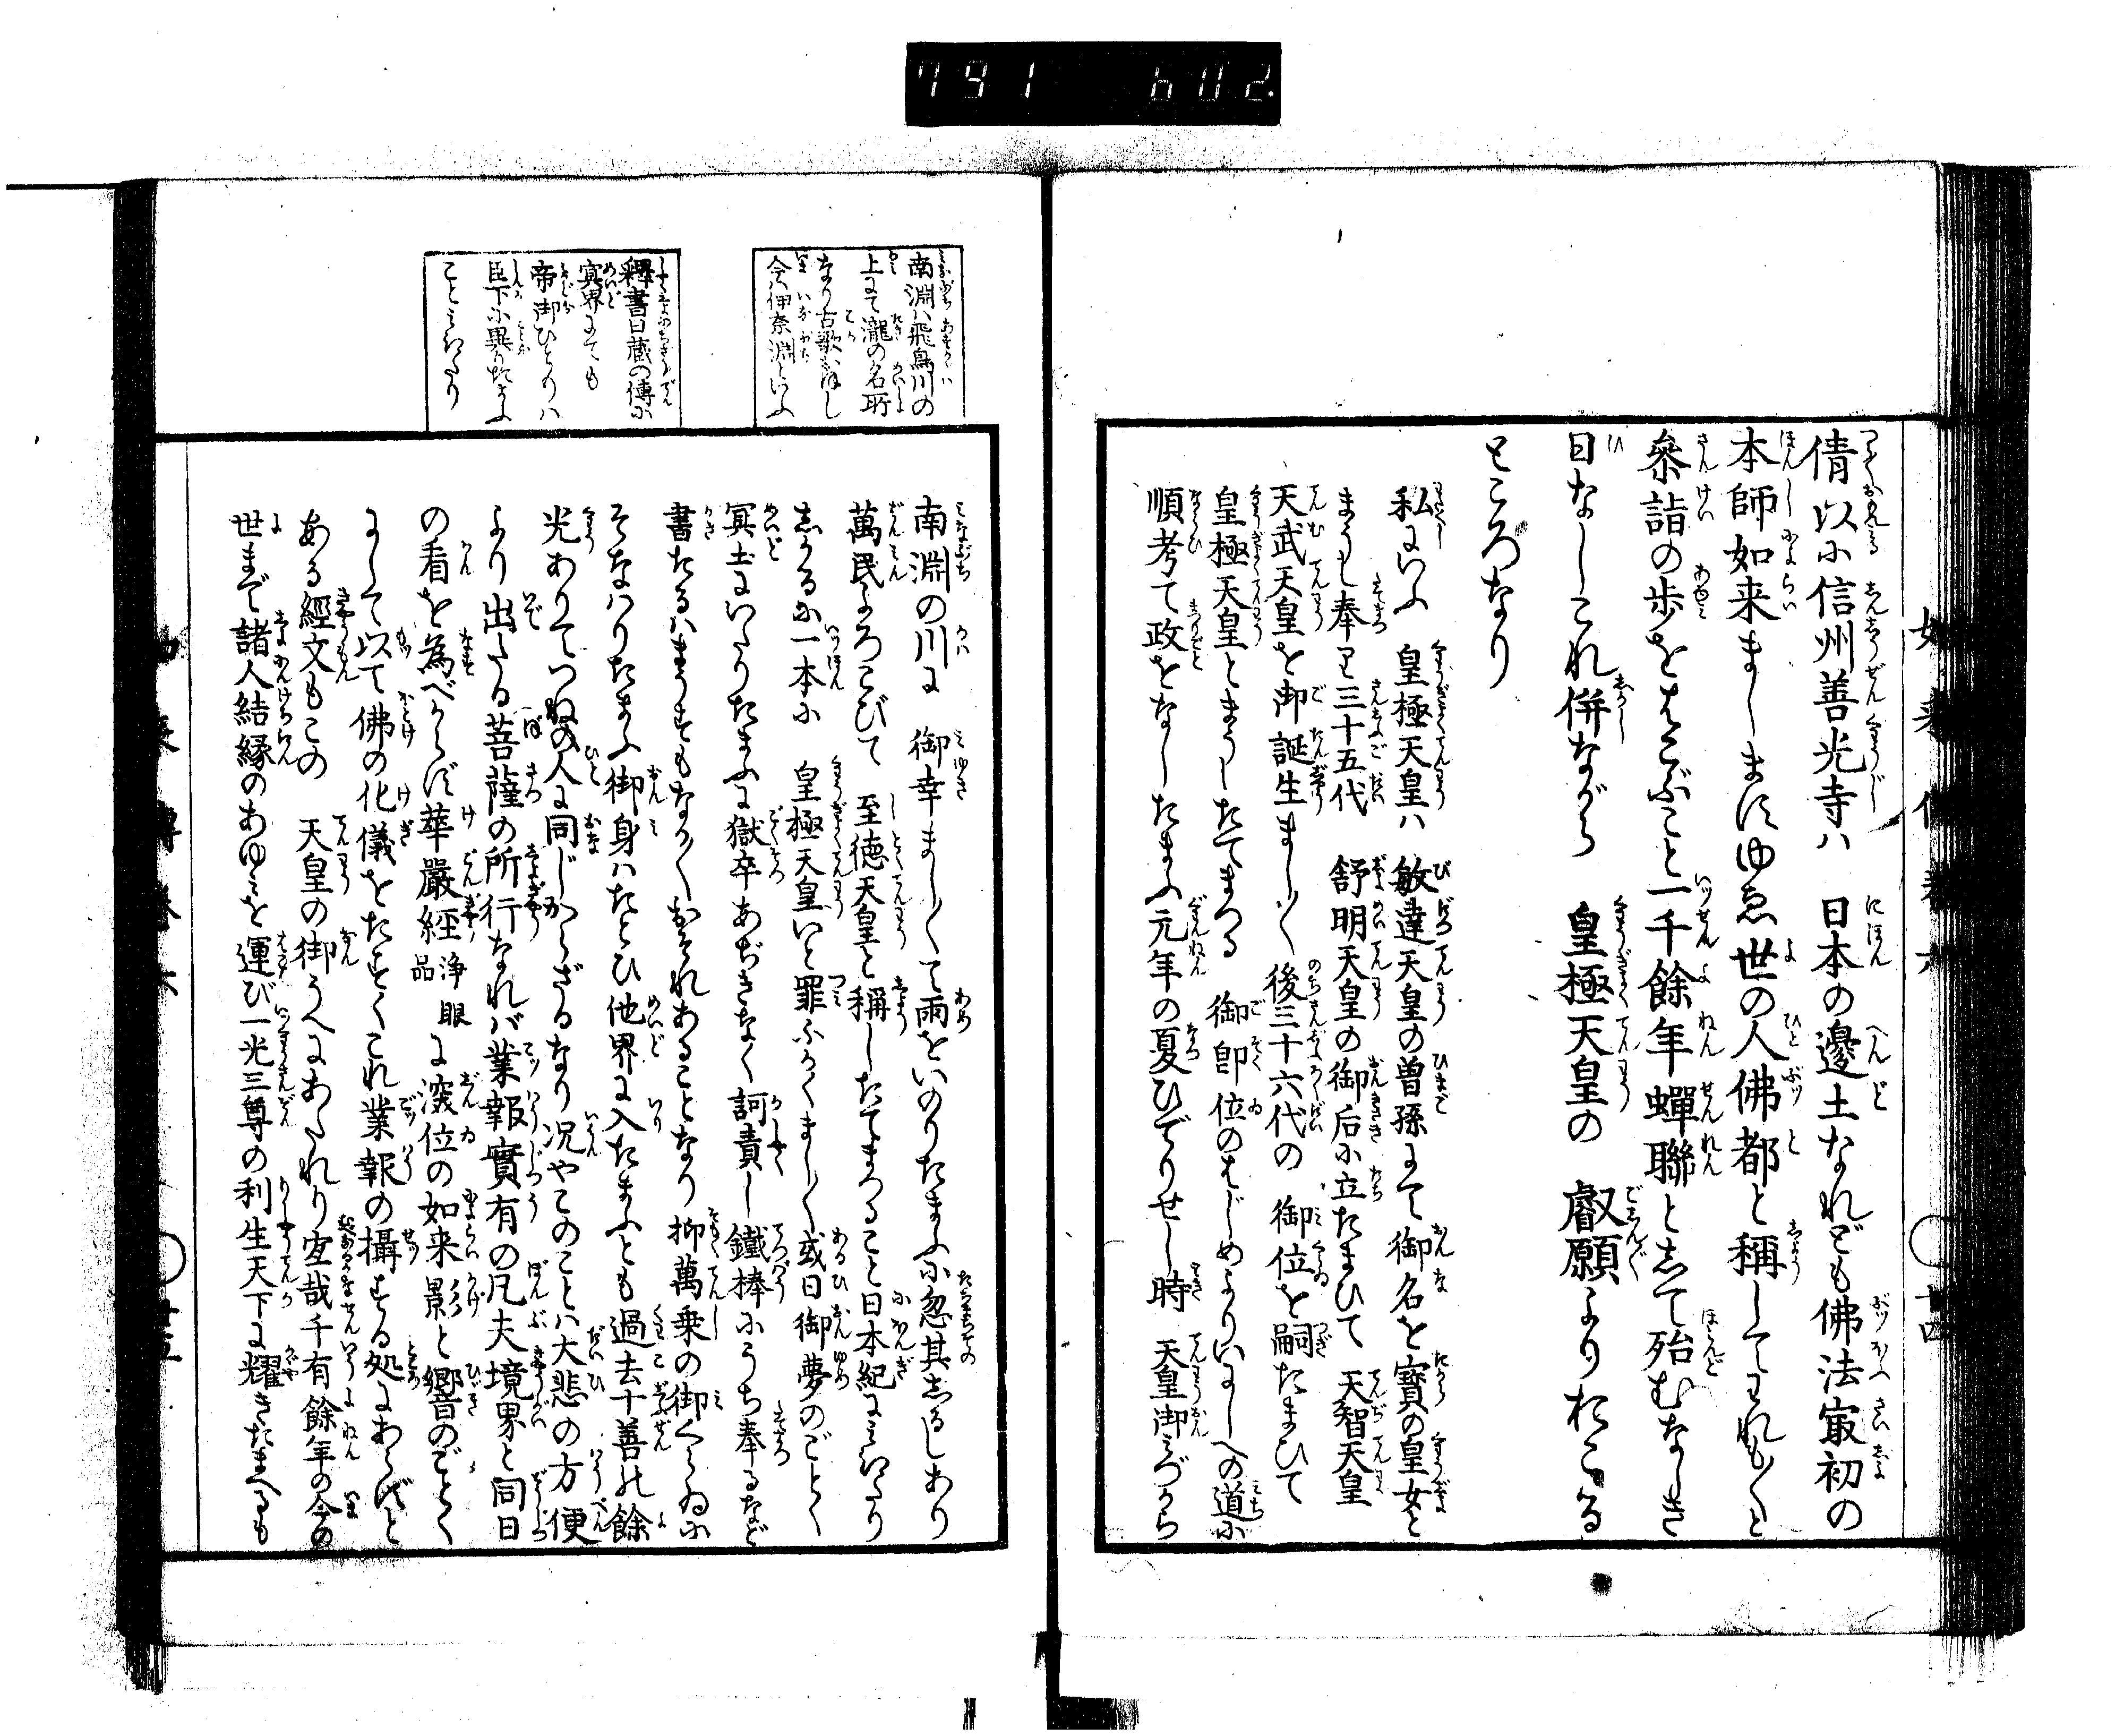 791 602.
倩以に信州善光寺ハ 日本の邊土なれども佛法㝡初の
本師如来ましますゆゑ世の人佛都と稱してわれも〳〵と
叅詣の歩をはこぶこと一千餘年蟬聯として殆むなしき
日なしこれ併ながら 皇極天皇の 叡願よりおこる
ところなり
私にいふ 皇極天皇ハ 敏達天皇の曽孫にて御名を寳の皇女と
まうし奉る三十五代 舒明天皇の御后に立たまひて 天智天皇
天武天皇を御誕生まし〳〵後三十六代の 御位を嗣たまひて
皇極天皇とまうしたてまつる 御即位のはじめよりいにしへの道に
順考て政をなしたまふ元年の夏ひでりせし時 天皇御みづから
南淵ハ飛鳥川の
上にて瀧の名所
なり古歌おほし
今伊奈淵といふ
釋書日蔵の傳に
冥界にても
帝御ひとりハ
臣下に異りたまふ
ことみえたり
南淵の川に 御幸まし〳〵て雨をいのりたまふに忽其しるしあり
萬民よろこびて 至徳天皇と稱したてまつること日本紀にみえたり
しかるに一本に 皇極天皇いと罪ふかくまし〳〵或日御夢のごとく
冥土にいたりたまふに獄卒あぢきなく訶責し鐵棒にうち奉るなど
書たるハまうすもなか〳〵おそれあることなり抑萬乗の御くらゐに
そなハりたまふ御身ハたとひ他界に入たまふとも過去十善の餘
光ありてつねの人に同じからざるなり况やこのことハ大悲の方便
より出たる菩薩の所行なれバ業報實有の凡夫境界と同日
の看を為べからず華嚴経浄眼品に深位の如来影と響のごとく
にして以て佛の化儀をたすくこれ業報の攝する処にあらずと
ある經文もこの 天皇の御うへにあたれり宜哉千有餘年の今の
世まで諸人結縁のあゆみを運び一光三尊の利生天下に耀きたまへるも